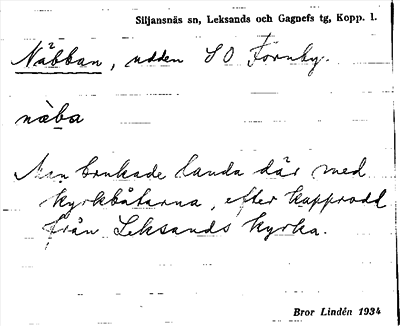 Siljansnäs sn, Leksands och Gagnefs tg, Kopp. l.
Näbban, udden SO Fornby.
nàba
Man brukade landa där med
kyrkbåtarna, efter kapprodd
från Leksands kyrka.
Bror Lindén 1934